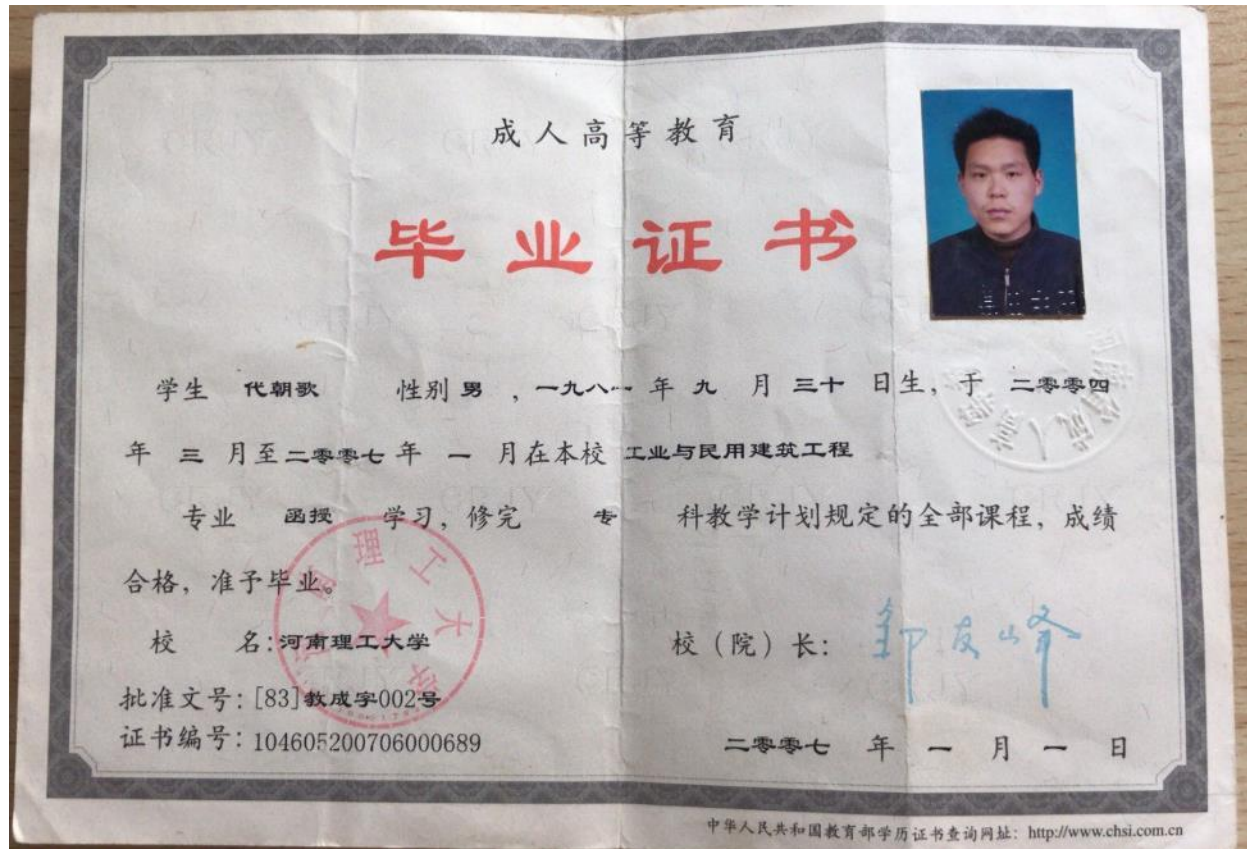 成人高等教育
毕业证书
学生 代朝歌 性别 男 , 一九八一 年 九 月 三十 日生, 于 二零零四
年 三 月至 二零零七 年 一 月在本校 工业与民用建筑工程
专业 函授 学习, 修完 专 科教学计划规定的全部课程, 成绩
合格, 准予毕业。
校 名: 河南理工大学
校（院）长: 邹友峰
批准文号: [83]教成字002号
证书编号: 104605200706000689
二零零七 年 一 月 一 日
中华人民共和国教育部学历证书查询网址: http://www.chsi.com.cn